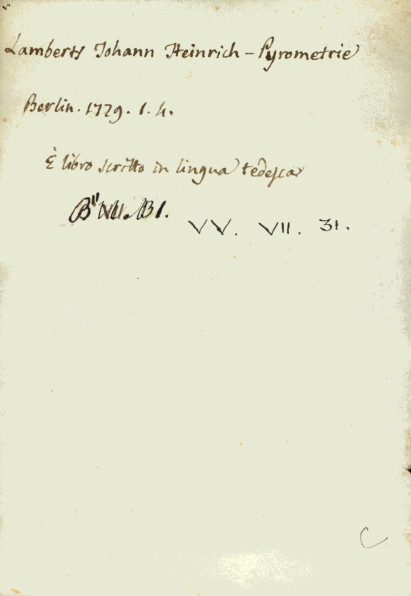 Lamberts Johann Heinrich - Pyrometrie
Berlin. 1779. 1. 4.
È libro scritto in lingua tedesca
B" VII. B1.
VV. VII. 31.
C